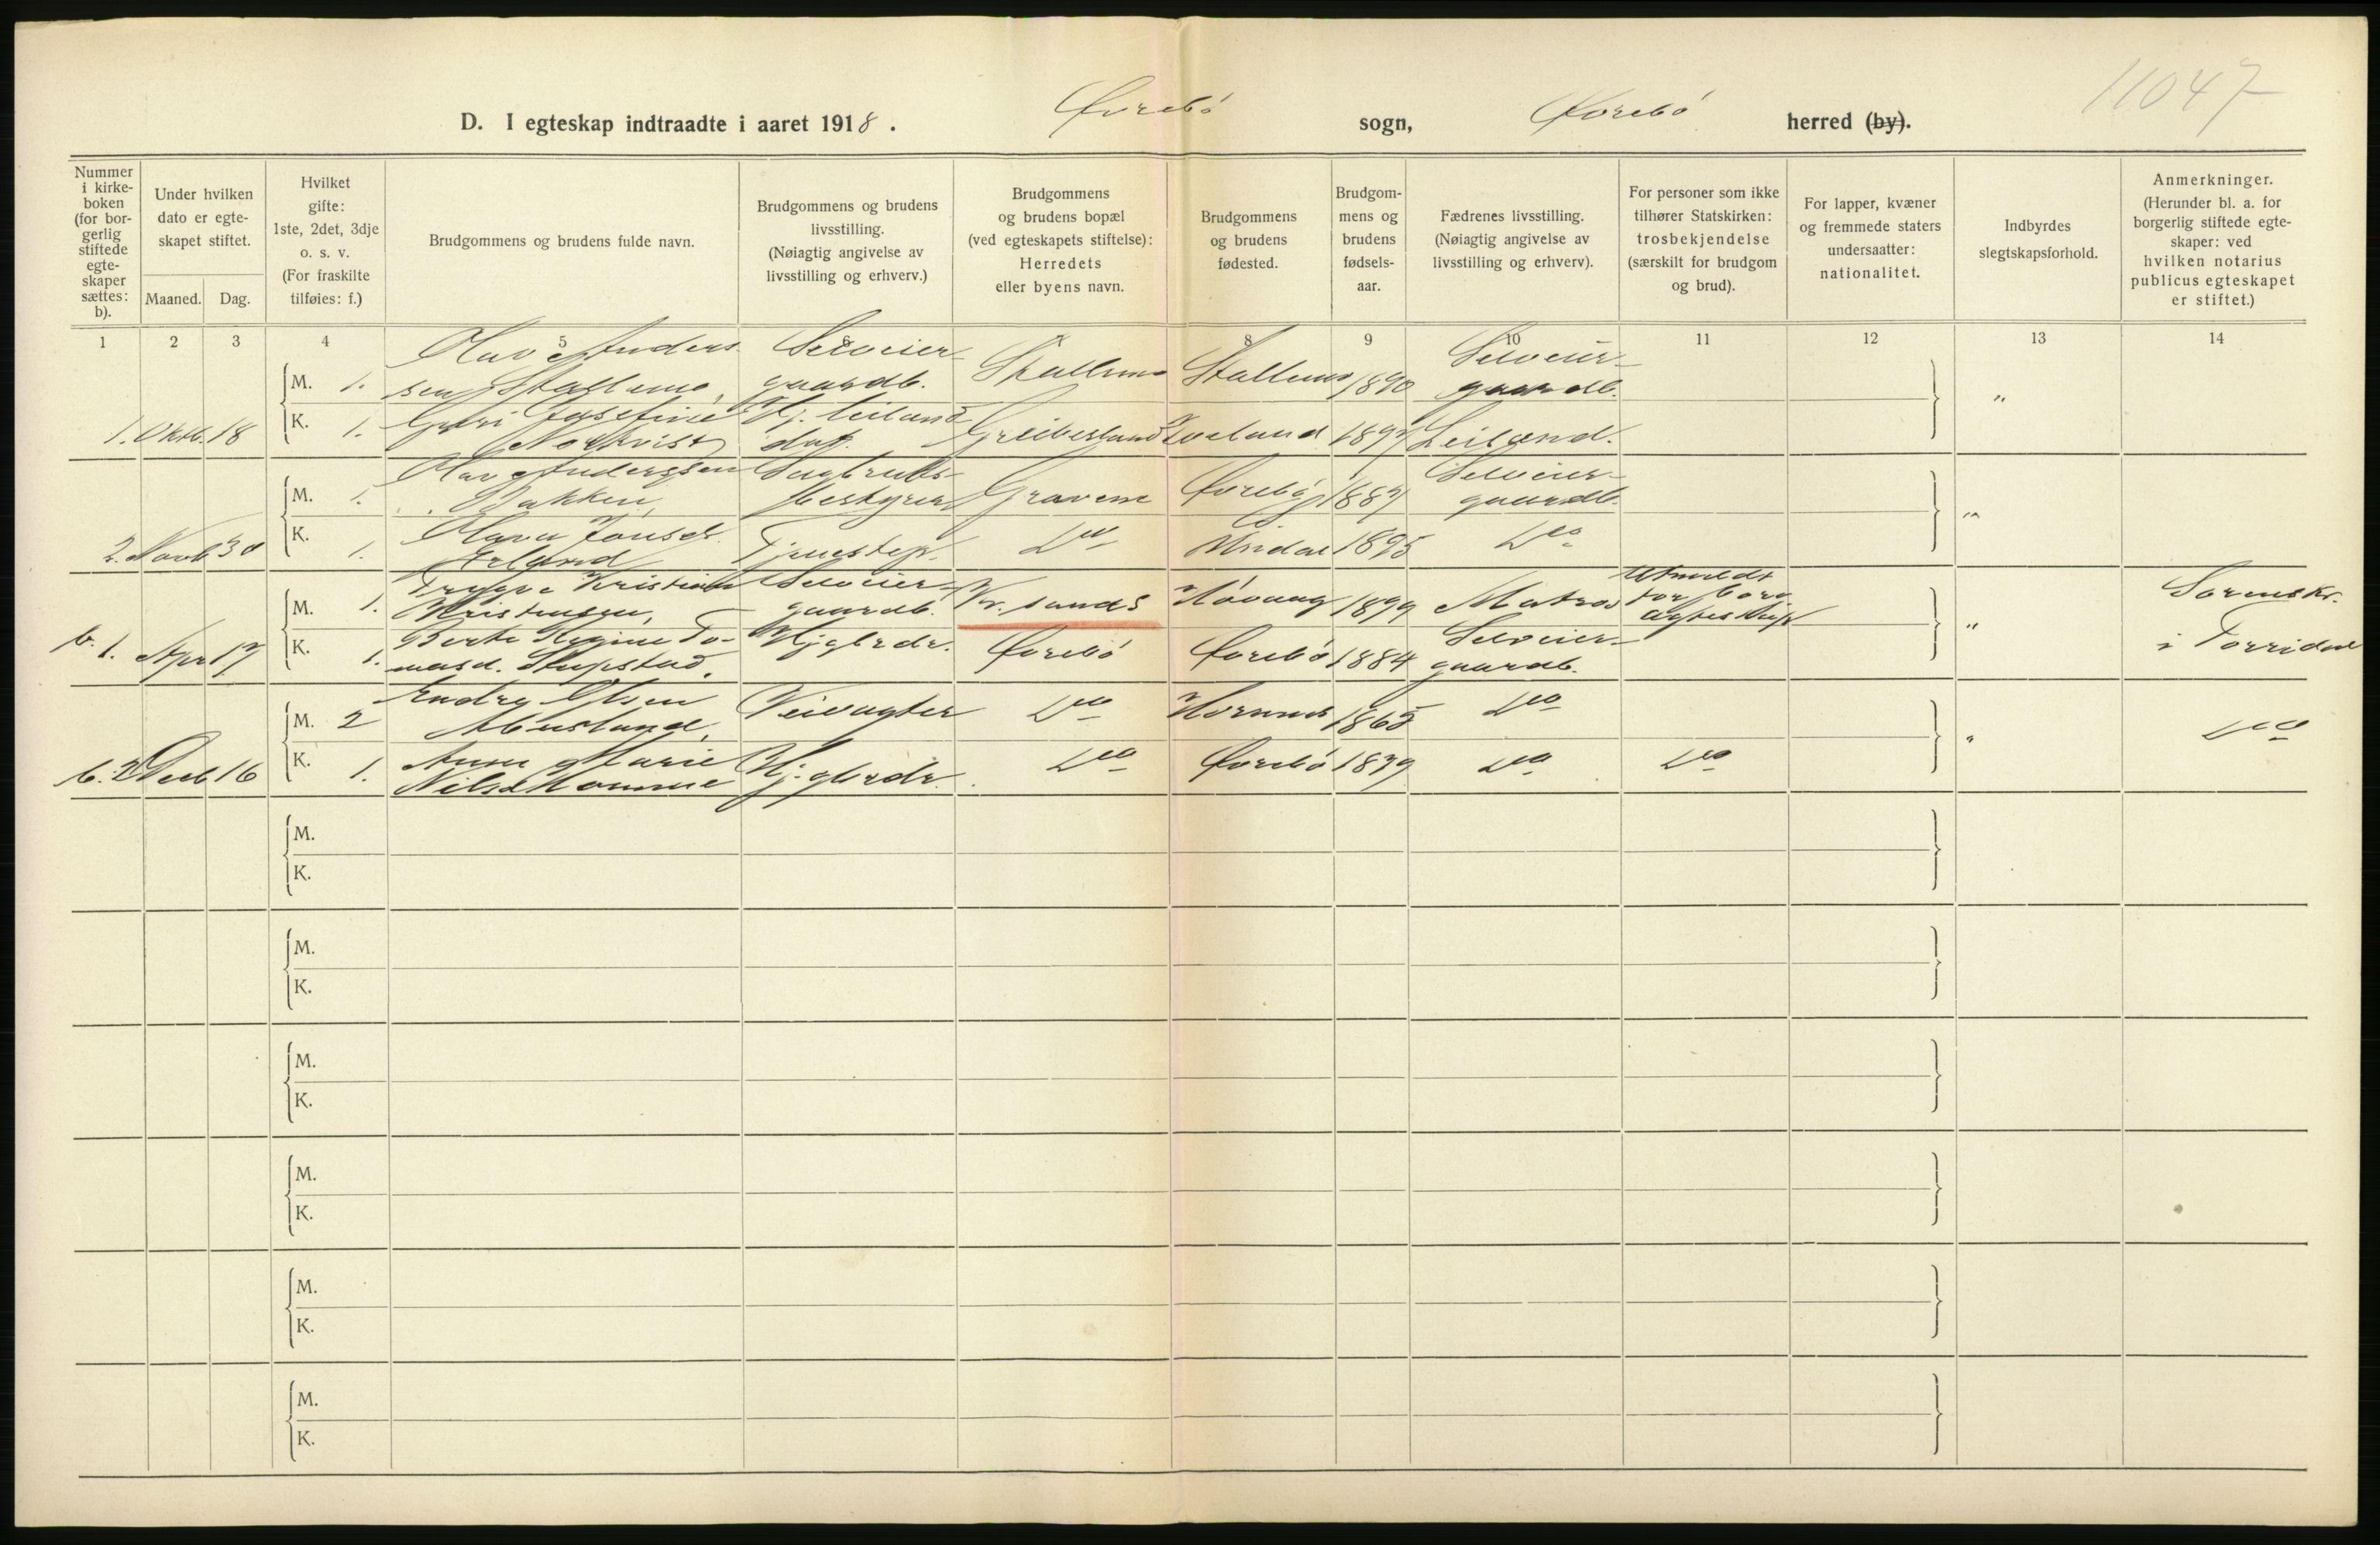 11047
D. I egteskap indtraadte i aaret 1918. Øvrebö sogn, Øvrebö herred (by).
Nummer i kirkeboken (for borgerlig stiftede egteskaper sættes: b).
Under hvilken dato er egteskapet stiftet.
Maaned. Dag.
Hvilket gifte: 1ste, 2det, 3dje o. s. v. (For fraskilte tilføies: f.)
Brudgommens og brudens fulde navn.
Brudgommens og brudens livsstilling. (Nøiagtig angivelse av livsstilling og erhverv.)
Brudgommens og brudens bopæl (ved egteskapets stiftelse): Herredets eller byens navn.
Brudgommens og brudens fødested.
Brudgommens og brudens fødselsaar.
Fædrenes livsstilling. (Nøiagtig angivelse av livsstilling og erhverv).
For personer som ikke tilhører Statskirken: trosbekjendelse (særskilt for brudgom og brud).
For lapper, kvæner og fremmede staters undersaatter: nationalitet.
Indbyrdes slegtskapsforhold.
Anmerkninger. (Herunder bl. a. for borgerlig stiftede egteskaper: ved hvilken notarius publicus egteskapet er stiftet.)
1 2 3 4 5 6 7 8 9 10 11 12 13 14
M. 1. Olav Anders- Selveier-
sen Stallemo, gaardb. Stallemo Stallemo 1890 Selveier- gaardb. "
1. Oktb. 18 K. 1. Josefine Hj. leilænd-
Nordkvist Greibesland Iveland 1897 Leilænd.
M. 1. Olav Anderssen Sagbruks-
Bakken, bestyrer Gravene Øvrebö 1887 Selveier- gaardb. "
2. Novb 30 K. 1. Olava Jonsd.
Erland Tjenestep. Do Vindal 1895 Do
M. 1. Trygve Kristian Selveier- Utmeldt
Kristensen, gaardb. Kr.sands Hövaag 1899 Matros for borg. Sorenskr.
b. 1. Apr 17 K. 1. Berte Regine To- Hj gbrdr. Selveier- ægteskap " i Torridal
masd. Stupstad. Øvrebö Øvrebö 1884 gaardb.
M. 2 Endre Olsen
Abusland, Veivogter Do Hornnes 1865 Do " Do
b. 2 Decb 16 K. 1. Anne Marie
Nilsd Homme Hj. gbrdr. Do Øvrebö 1879 Do Do
M.
K.
M.
K.
M.
K.
M.
K.
M.
K.
M.
K.